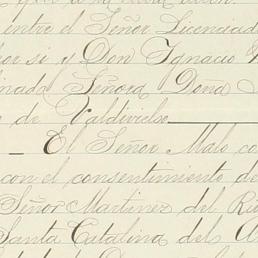 entre el Señor Licenciad
por si y Don Ignacio
nado Señora Doña
de Valdivielso
El Señor Malo co
con el consentimiento de
Señor Martinez del Rio
Santa Catalina del A